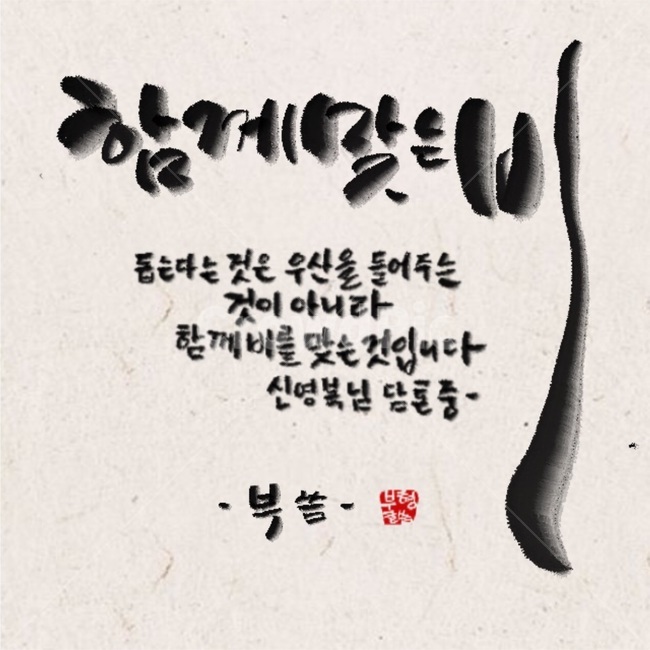 함께맞은비
돕는다는 것은 우산을 들어주는
것이 아니라
함께 비를 맞는것입니다
신영복님 담론중-
- 부쓺 -